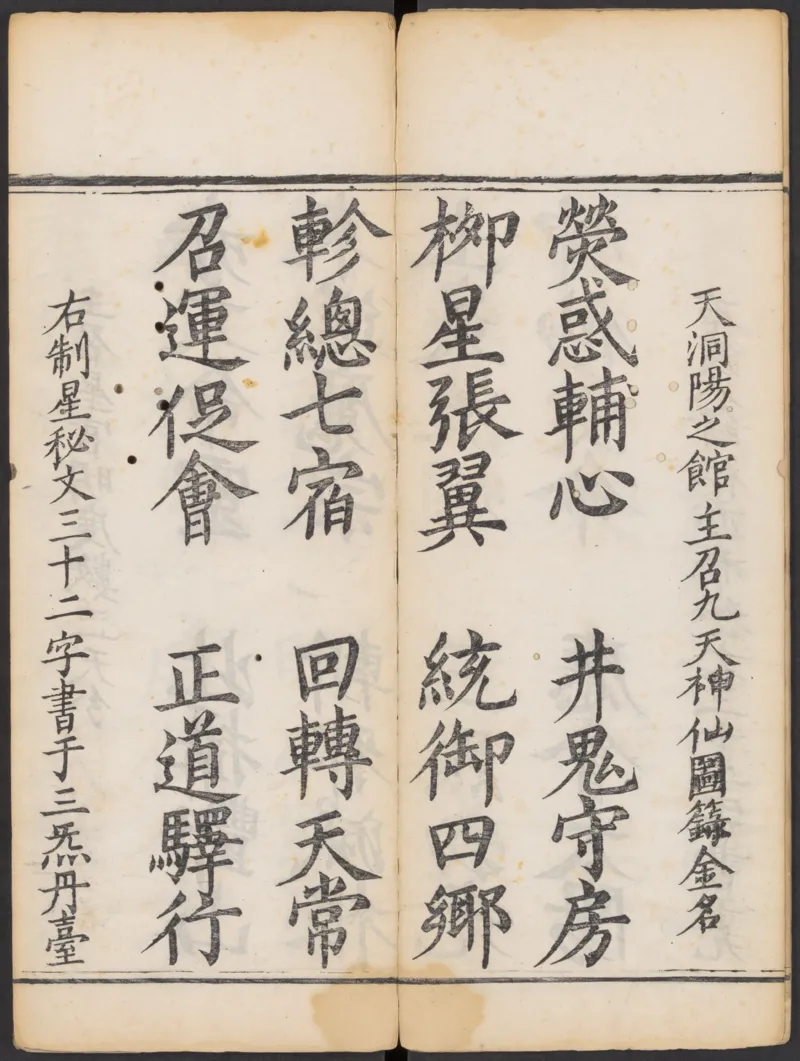 天洞陽之館主召九天神仙圖籙金名
熒惑輔心　井鬼守房
栁星張翼　統御四鄉
軫總七宿　回轉天常
召運促會　正道驛行
右制星秘文三十二字書于三炁丹臺